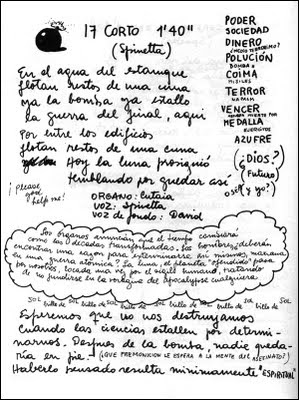 17 CORTO 1'40"
(Spinetta)
En el agua del estanque
flotan restos de una cuna
ya la bomba ya estalló
la guerra del final, aquí
Por entre los edificios
flotan restos de una cuna
Hoy la luna prosiguió
temblando por quedar así
¡please, god help me!
ORGANO: Cutaia
VOZ: Spinetta
VOZ de fondo: David
PODER
SOCIEDAD
DINERO
¿MICRO TERRORISMO?
POLUCIÓN
BOMBA H
COIMA
MISILES
TERROR
NAPALM
VENCER
HAMBRE MUERTE POR
MEDALLA
EJERCITOS
AZUFRE
¿DIOS?
(Futuro)
o sea y yo?
Los órganos anuncian que el tiempo cambiará
como las décadas transformadas. los hombres deberán
encontrar una razón para exterminarse. Mi mismos, mañana
en una guerra atómica? La luna es planeta "perdido" para
por nosotros, tocada una vez por el sigilo humano, tratando
de no fundirse en la vorágine del Apocalypse cualquiera
SOL brillo de sol brillo de sol brillo de sol brillo de sol brillo de sol brillo de SOL
Esperemos que no nos destruyamos
Cuando las ciencias estallen por determi-
narnos. Después de la bomba, nadie queda-
ría en pie. (¿QUE PREMONICION LE ESPERA A LA MENTE DEL ASESINATO?)
Haberlo pensado resulta minimamente "ESPIRITUAL"